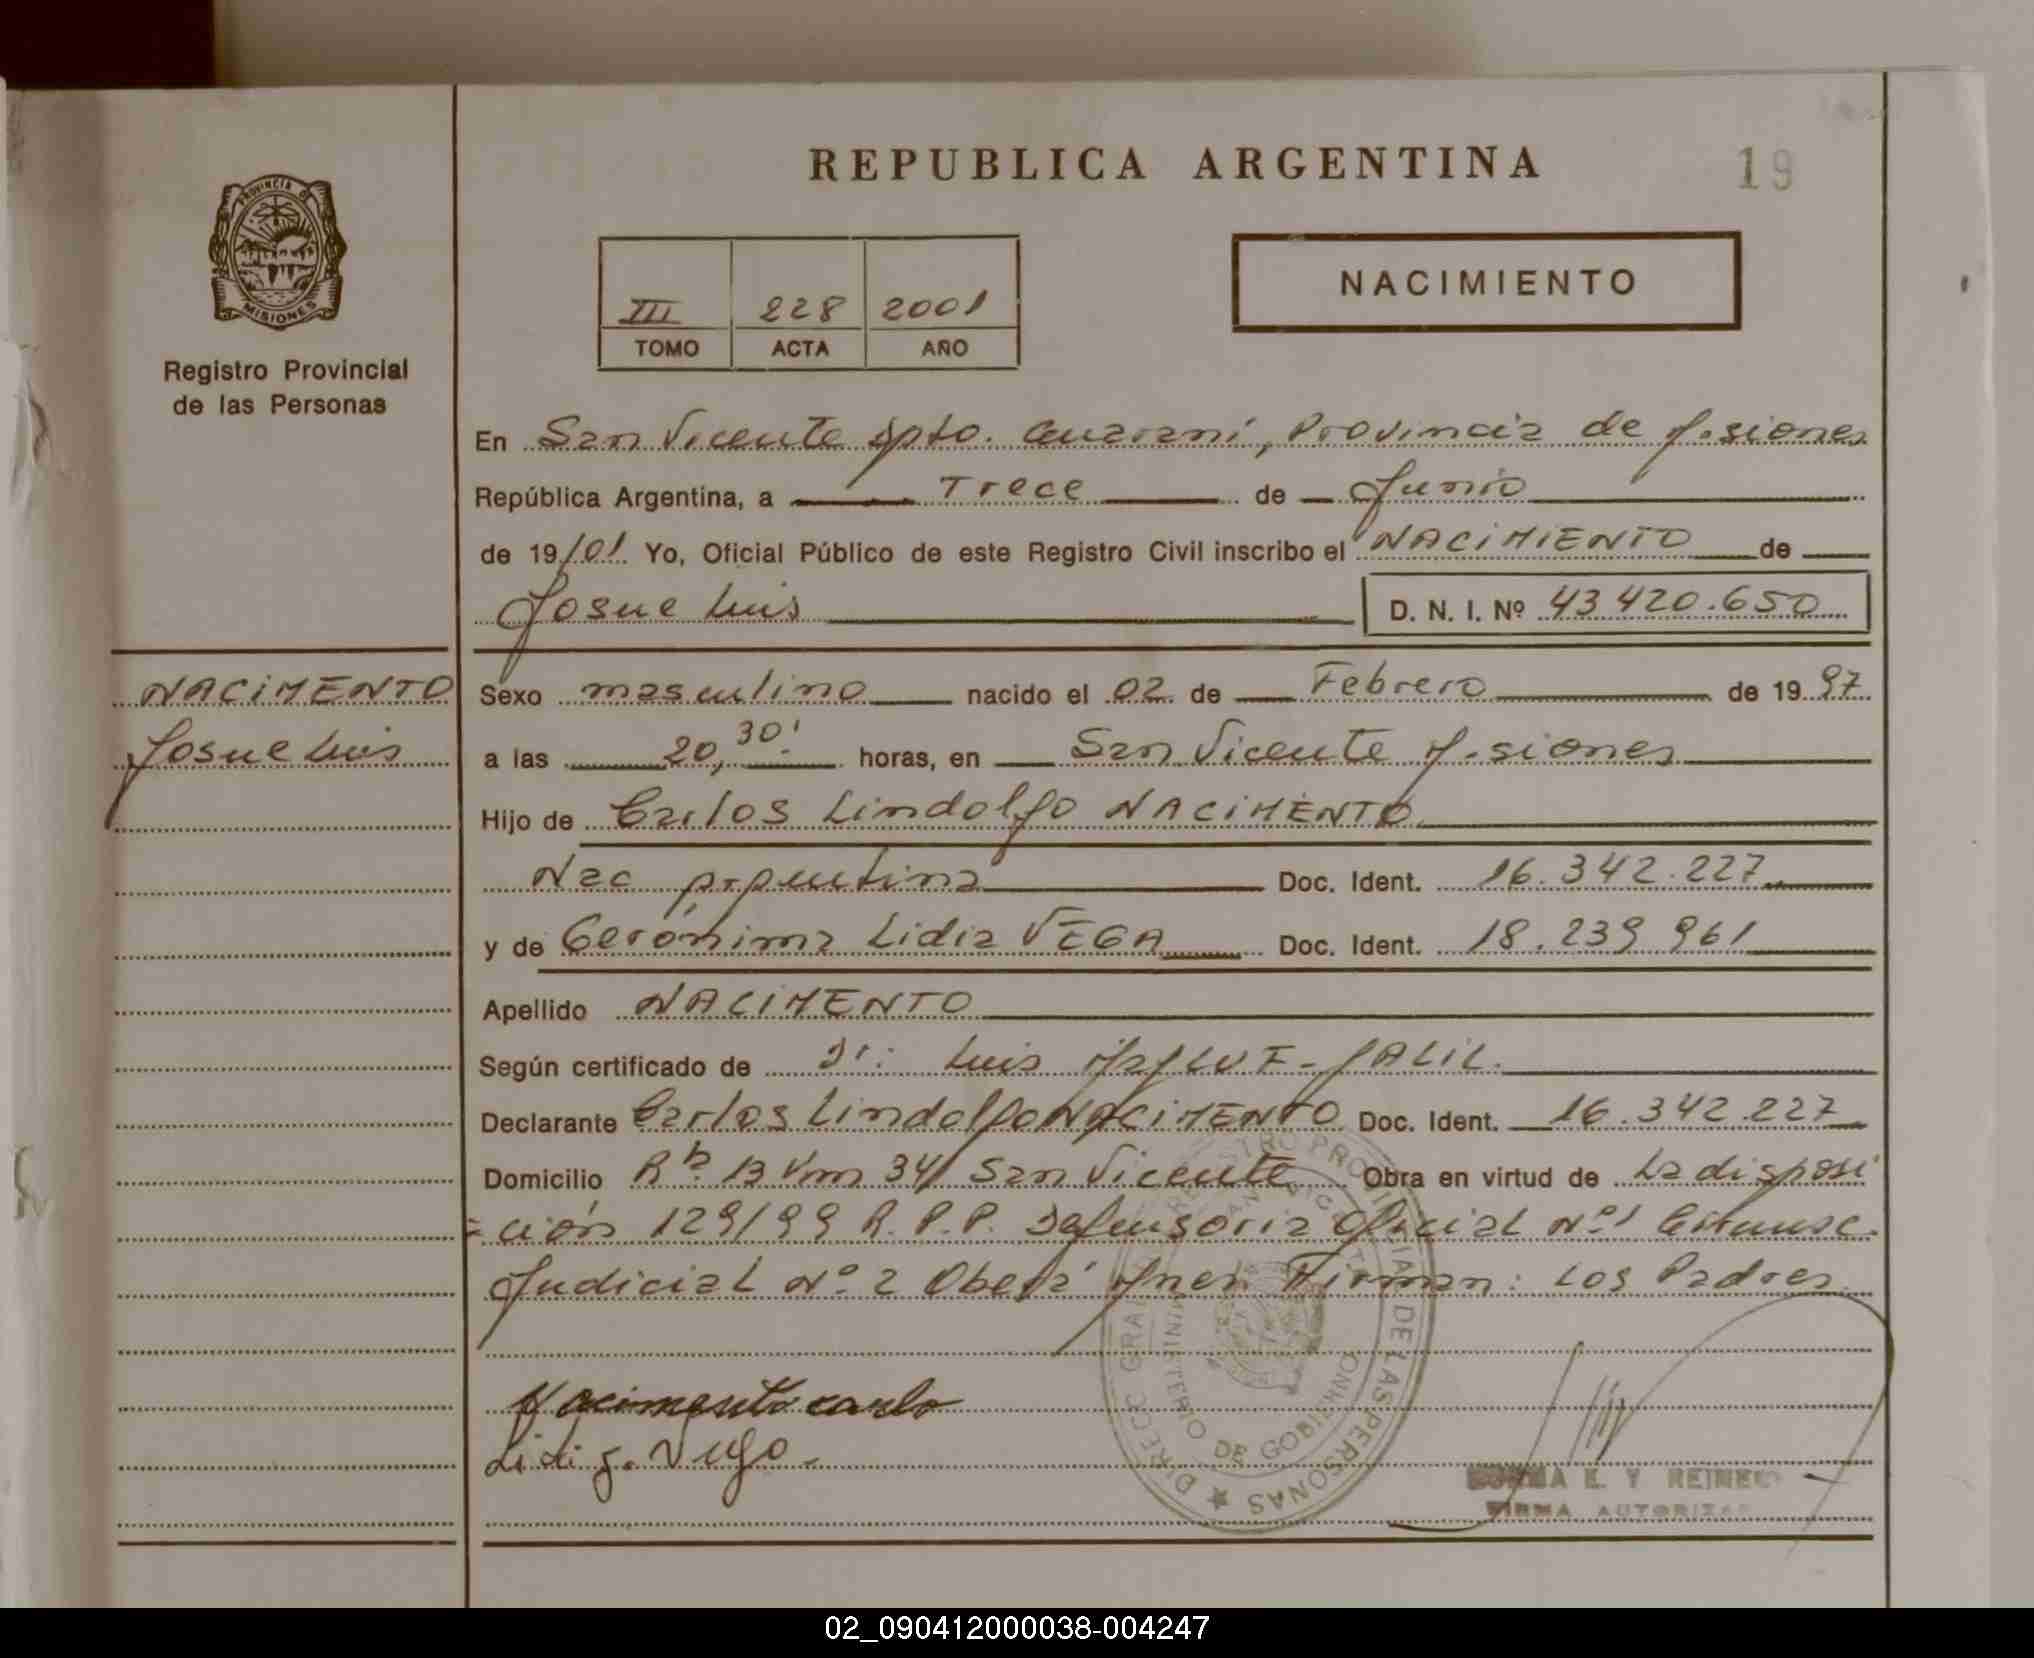 REPUBLICA ARGENTINA
19
PROVINCIA DE
MISIONES
Registro Provincial
de las Personas
III 228 2001
TOMO ACTA AÑO
NACIMIENTO
En San Vicente Dpto. Guaraní, Provincia de Misiones
República Argentina, a Trece de Junio
de 19/01. Yo, Oficial Público de este Registro Civil inscribo el NACIMIENTO de
Josue Luis D. N. I. Nº 43 420.650
NACIMENTO
Josue Luis
Sexo masculino nacido el 02 de Febrero de 19 97
a las 20,30' horas, en San Vicente Misiones
Hijo de Carlos Lindolfo NACIMENTO
Nac Argentina Doc. Ident. 16.342.227
y de Gerónima Lidia VEGA Doc. Ident. 18.239 961
Apellido NACIMENTO
Según certificado de Dr: Luis JALIL.
Declarante Carlos Lindolfo NACIMENTO Doc. Ident. 16.342.227
Domicilio Rta 13 Km 34 San Vicente Obra en virtud de La disposi
=ción 129/99 R.P.P. Defensoria Oficial Nº1 Circunsc.
Judicial Nº 2 Oberá Mnes Firman: Los Padres
Nacimento carlo
Lidi g. Vego.
REGISTRO PROVINCIAL DE LAS PERSONAS
MINISTERIO DE GOBIERNO
E. Y REINE
FIRMA AUTORIZA
02_090412000038-004247